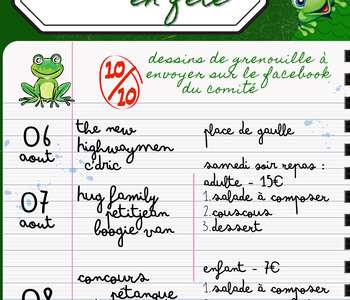 en fête
10/10
dessins de grenouille à
envoyer sur le facebook
du comité
06
août
the new
highwaymen
c'dric
place de gaulle
07
août
hug family
petitjean
boogie van
samedi soir repas :
adulte - 15€
1. salade à composer
2. couscous
3. dessert
08
concours
pétanque
enfant - 7€
1. salade à composer